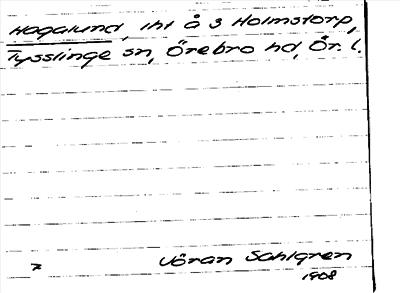 Hagalund, lht å s Holmstorp,
Tysslinge sn, Örebro hd, Ör. l.
Jöran Sahlgren
1908